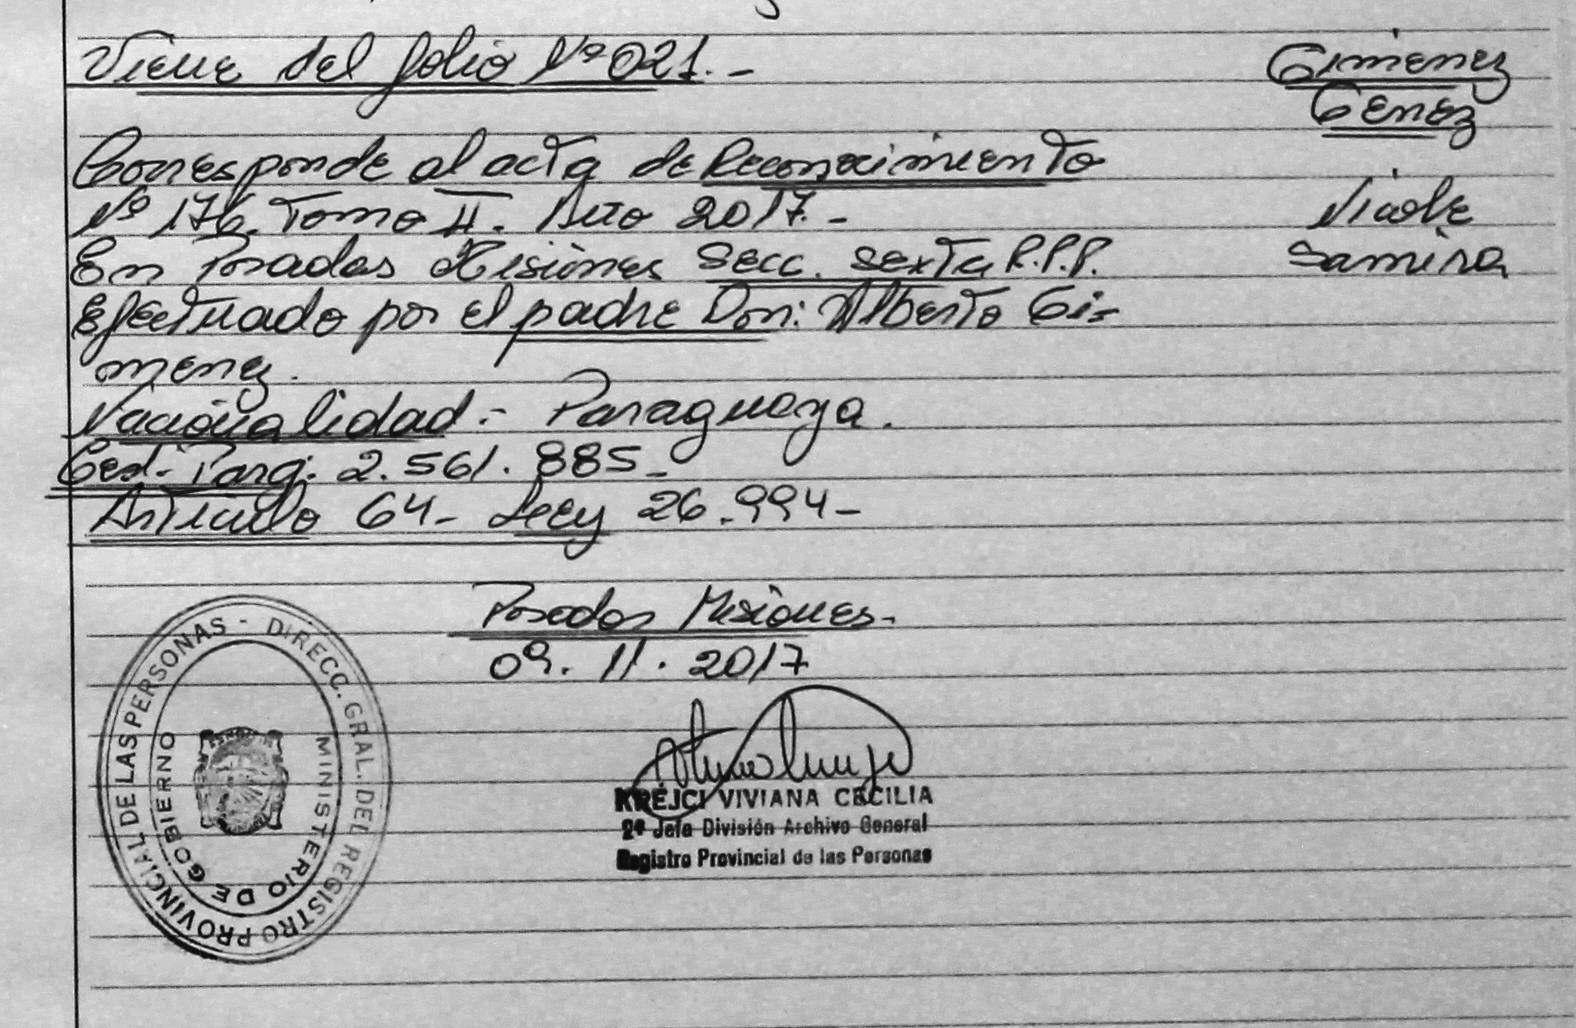 Viene del folio Nº 021.-
Corresponde al acta de Reconocimiento
Nº 176. Tomo II. Año 2017.-
En Posadas Misiones Secc. sexta R.P.P.
Efectuado por el padre Don: Alberto Gi-
menez.
Nacionalidad.- Paraguaya.
Ced. Parag. 2.561.885-
Articulo 64- Ley 26.994-
Gimenez
Genez
Nicole
Samira
Posadas Misiones-
09.11.2017
KREJCI VIVIANA CECILIA
2º Jefa División Archivo General
Registro Provincial de las Personas
DIRECC. GRAL. DEL REGISTRO PROVINCIAL DE LAS PERSONAS -
MINISTERIO DE GOBIERNO